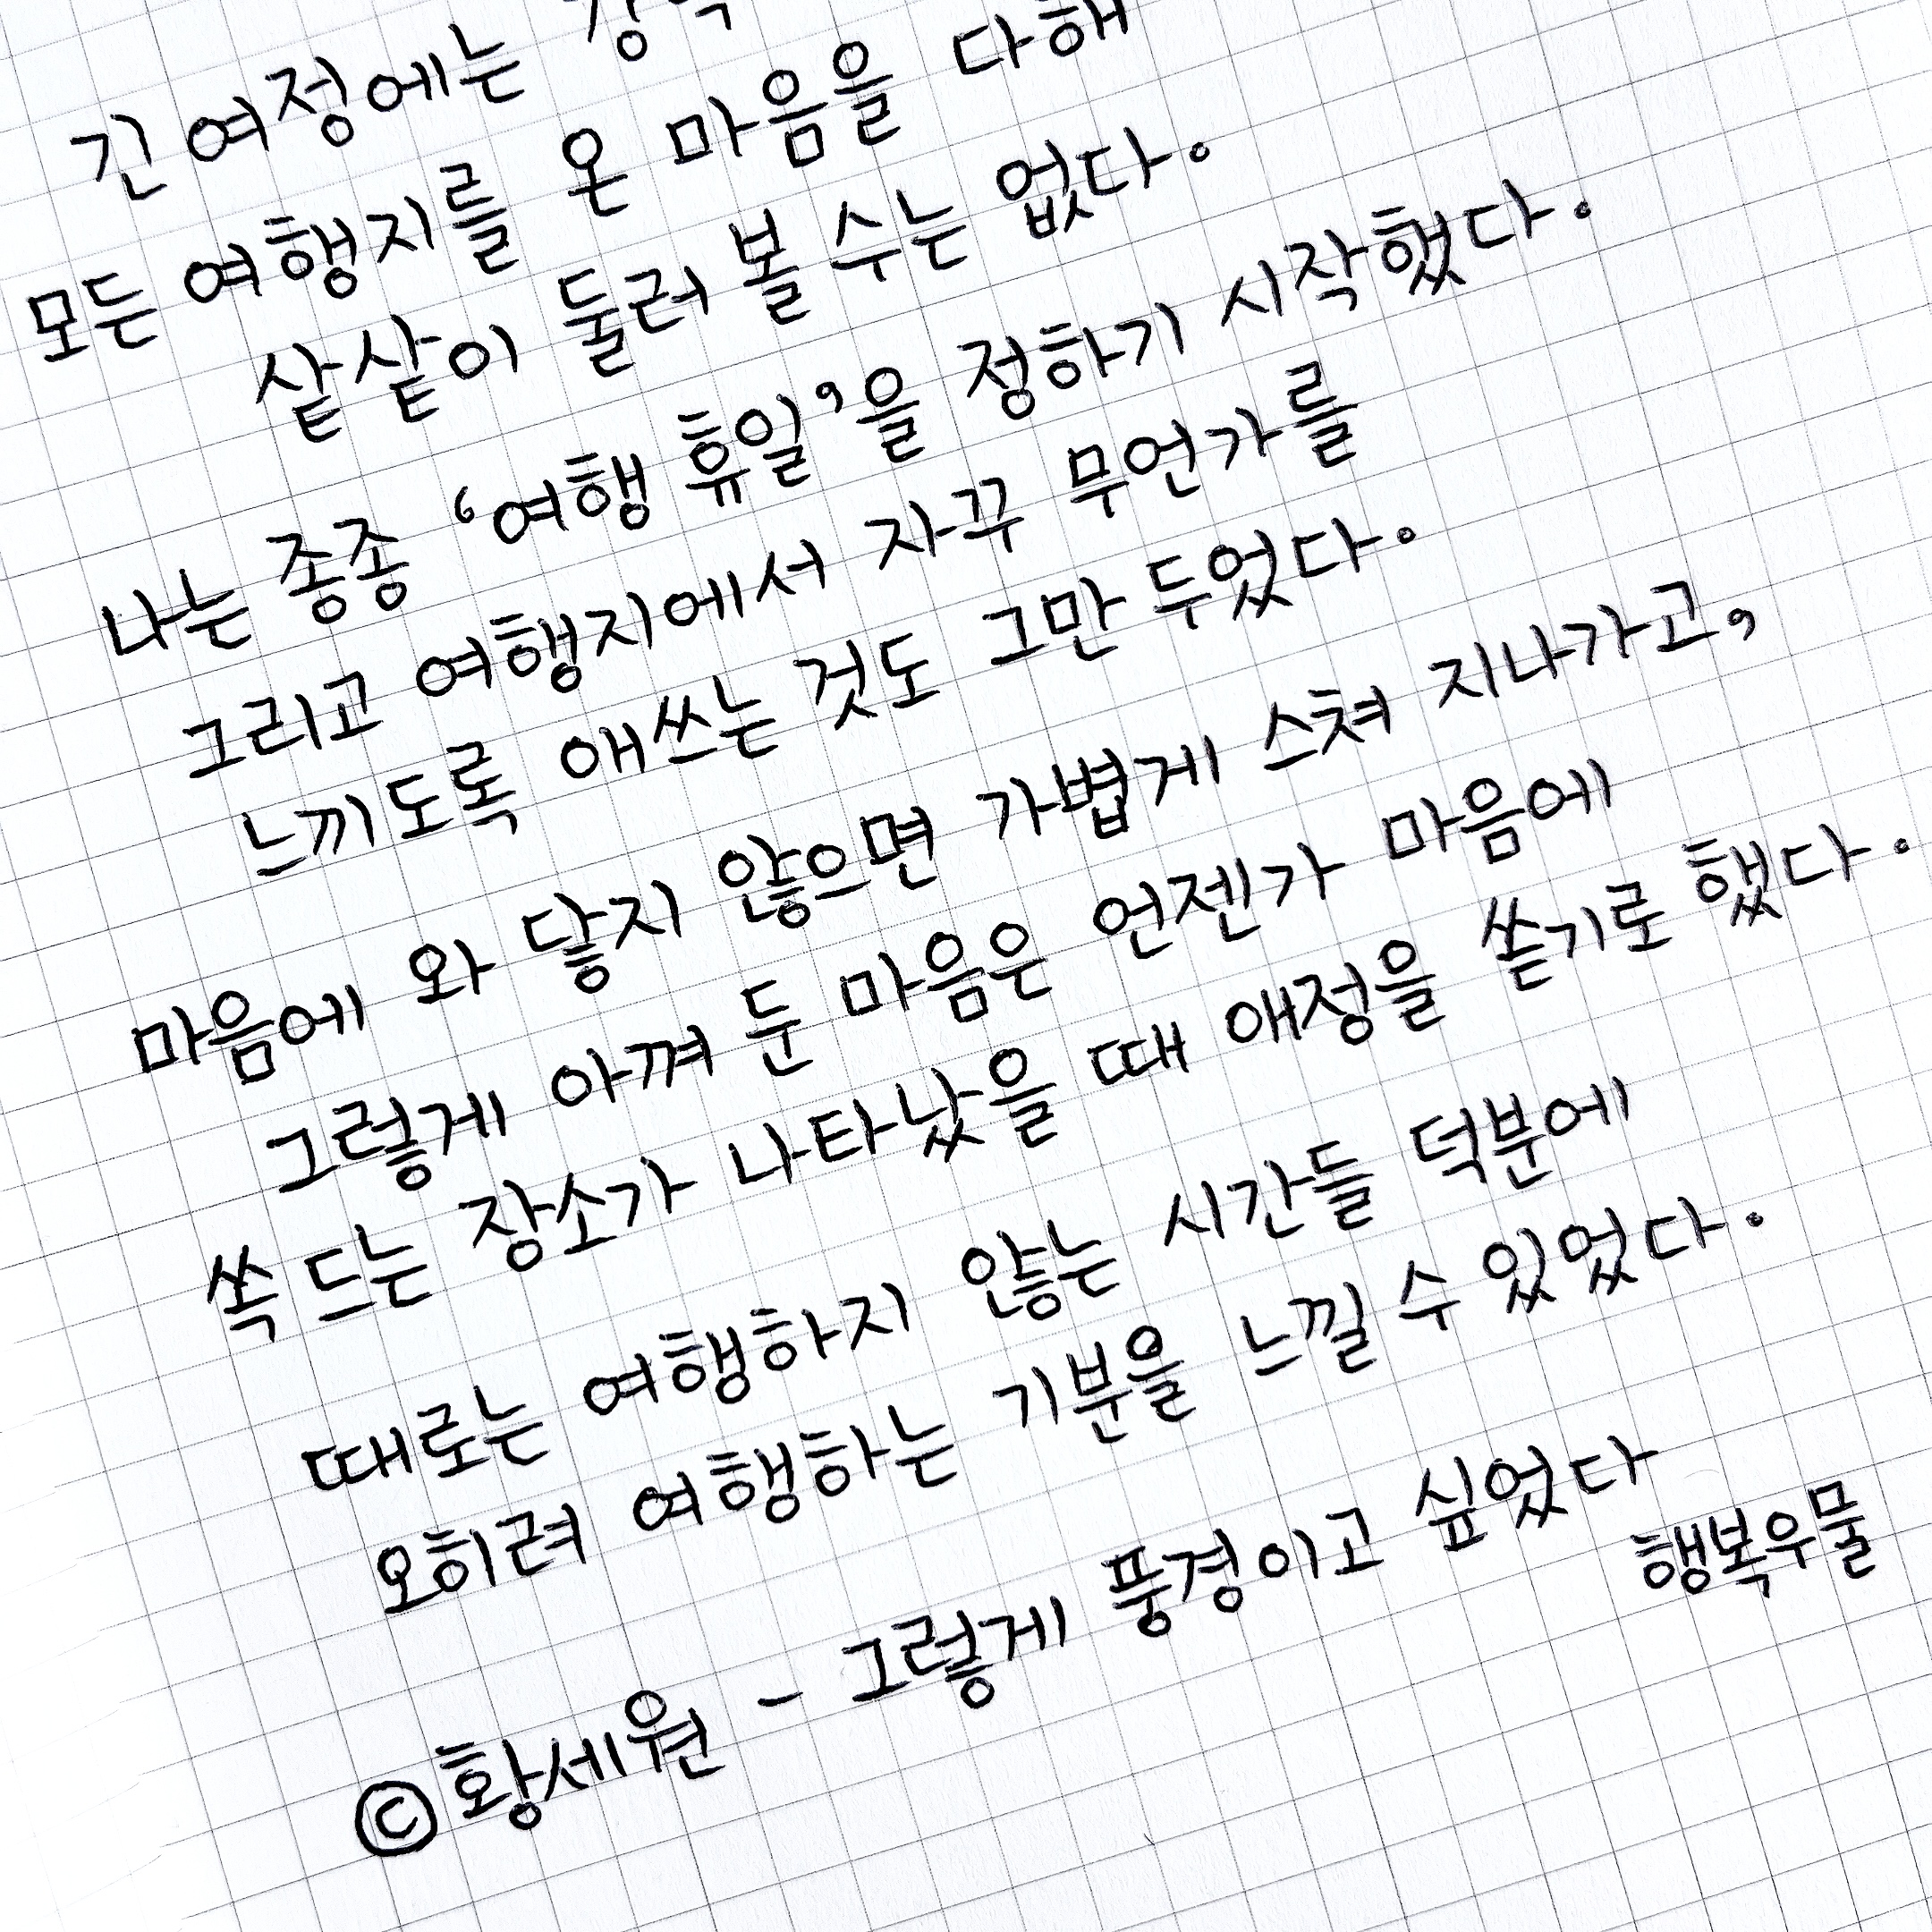 긴 여정에는
모든 여행지를 온 마음을 다해
샅샅이 둘러 볼 수는 없다.
나는 종종 '여행 휴일'을 정하기 시작했다.
그리고 여행지에서 자꾸 무언가를
느끼도록 애쓰는 것도 그만 두었다.
마음에 와 닿지 않으면 가볍게 스쳐 지나가고,
그렇게 아껴 둔 마음은 언젠가 마음에
쏙 드는 장소가 나타났을 때 애정을 쏟기로 했다.
때로는 여행하지 않는 시간들 덕분에
오히려 여행하는 기분을 느낄 수 있었다.
©황세원 - 그렇게 풍경이고 싶었다
행복우물